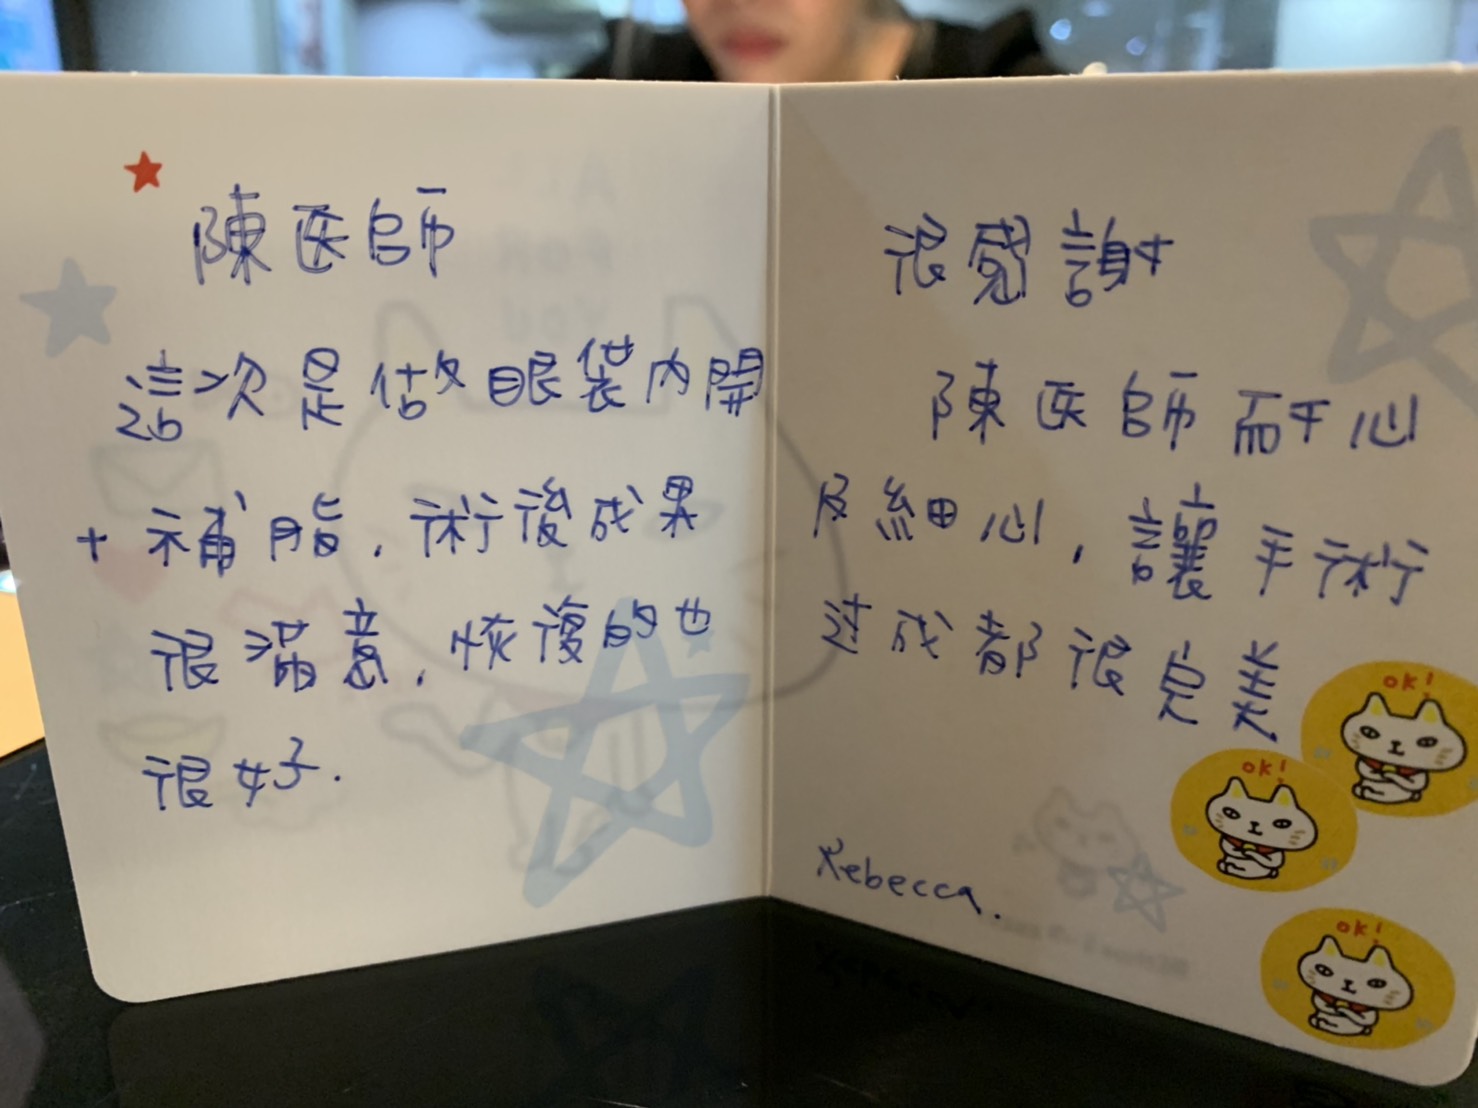 陳医師
這次是做眼袋內開
+補脂,術後成果
很滿意,恢復的也
很好.
很感謝
陳医師耐心
及細心,讓手術
过成都很完美
Rebecca.
OK!
OK!
OK!